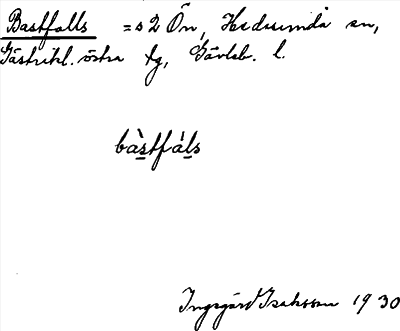 Bastfalls =s 2 Ön, Hedesunda sn,
Gästrikl. östra tg, Gävleb. l.
bàstfáls
Ingegärd Isaksson 1930